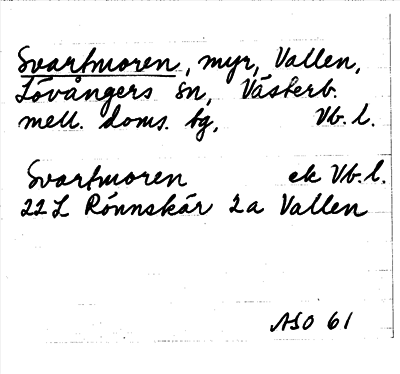 Svartmoren, myr, Vallen,
Lövångers sn, Västerb.
mell. doms. bg, Vb. l.
Svartmoren ek Vb. l.
22 L Rönnskär 2a Vallen
ASO 61